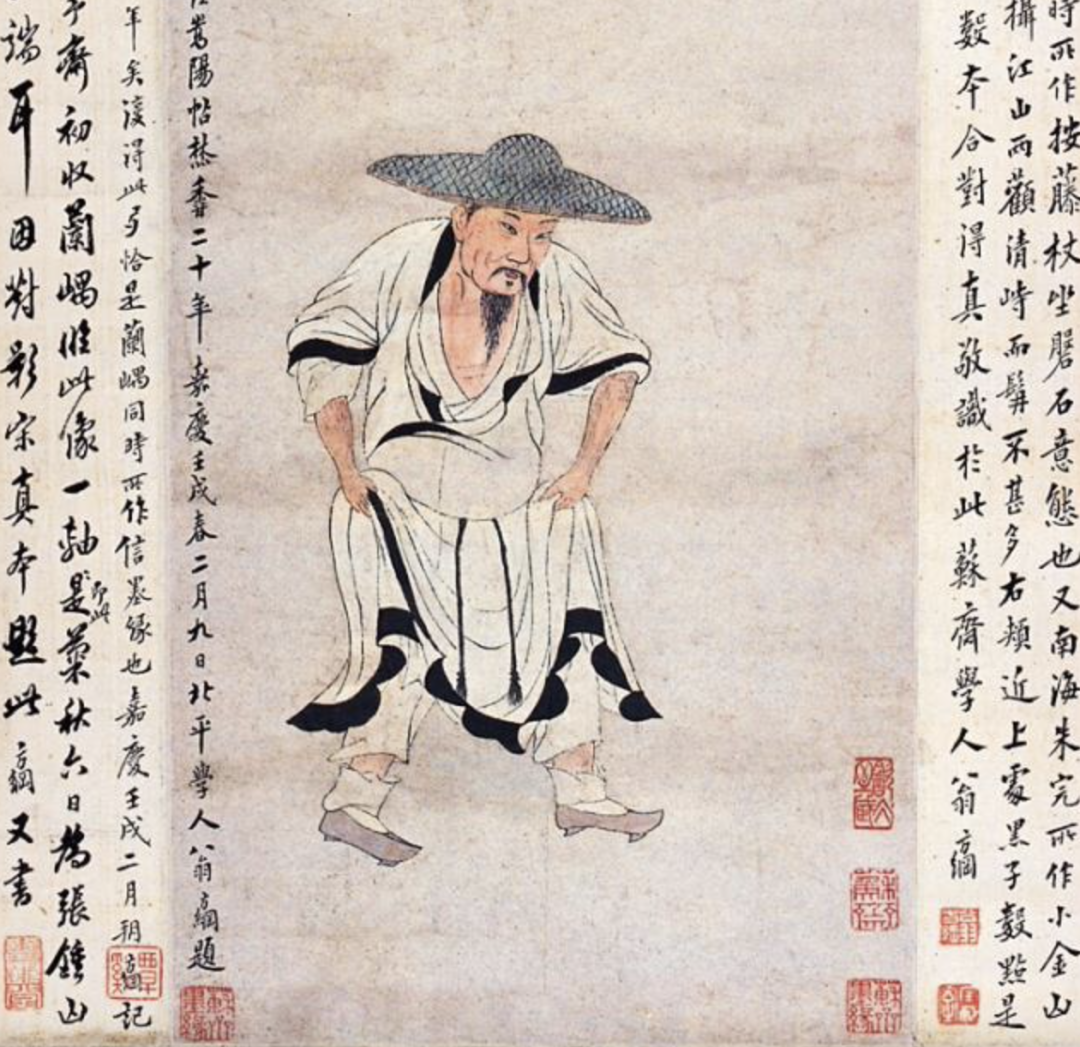 時所作按藤杖坐磐石意態也又南海朱完所作小金山
攝江山而顴清峙而髯不甚多右頰近上處黑子數點是
數本合對得真敬識於此蘇齋學人翁方綱
嵩陽帖焚香二十年嘉慶壬戌春二月九日北平學人翁方綱題
年矣復得此乃恰是蘭嵎同時所作信墨緣也嘉慶壬戌二月朔方綱記
予齋初收蘭嵎臨此像一軸是
秋六日為張鍾山
端耳因對影宋真本題此方綱又書